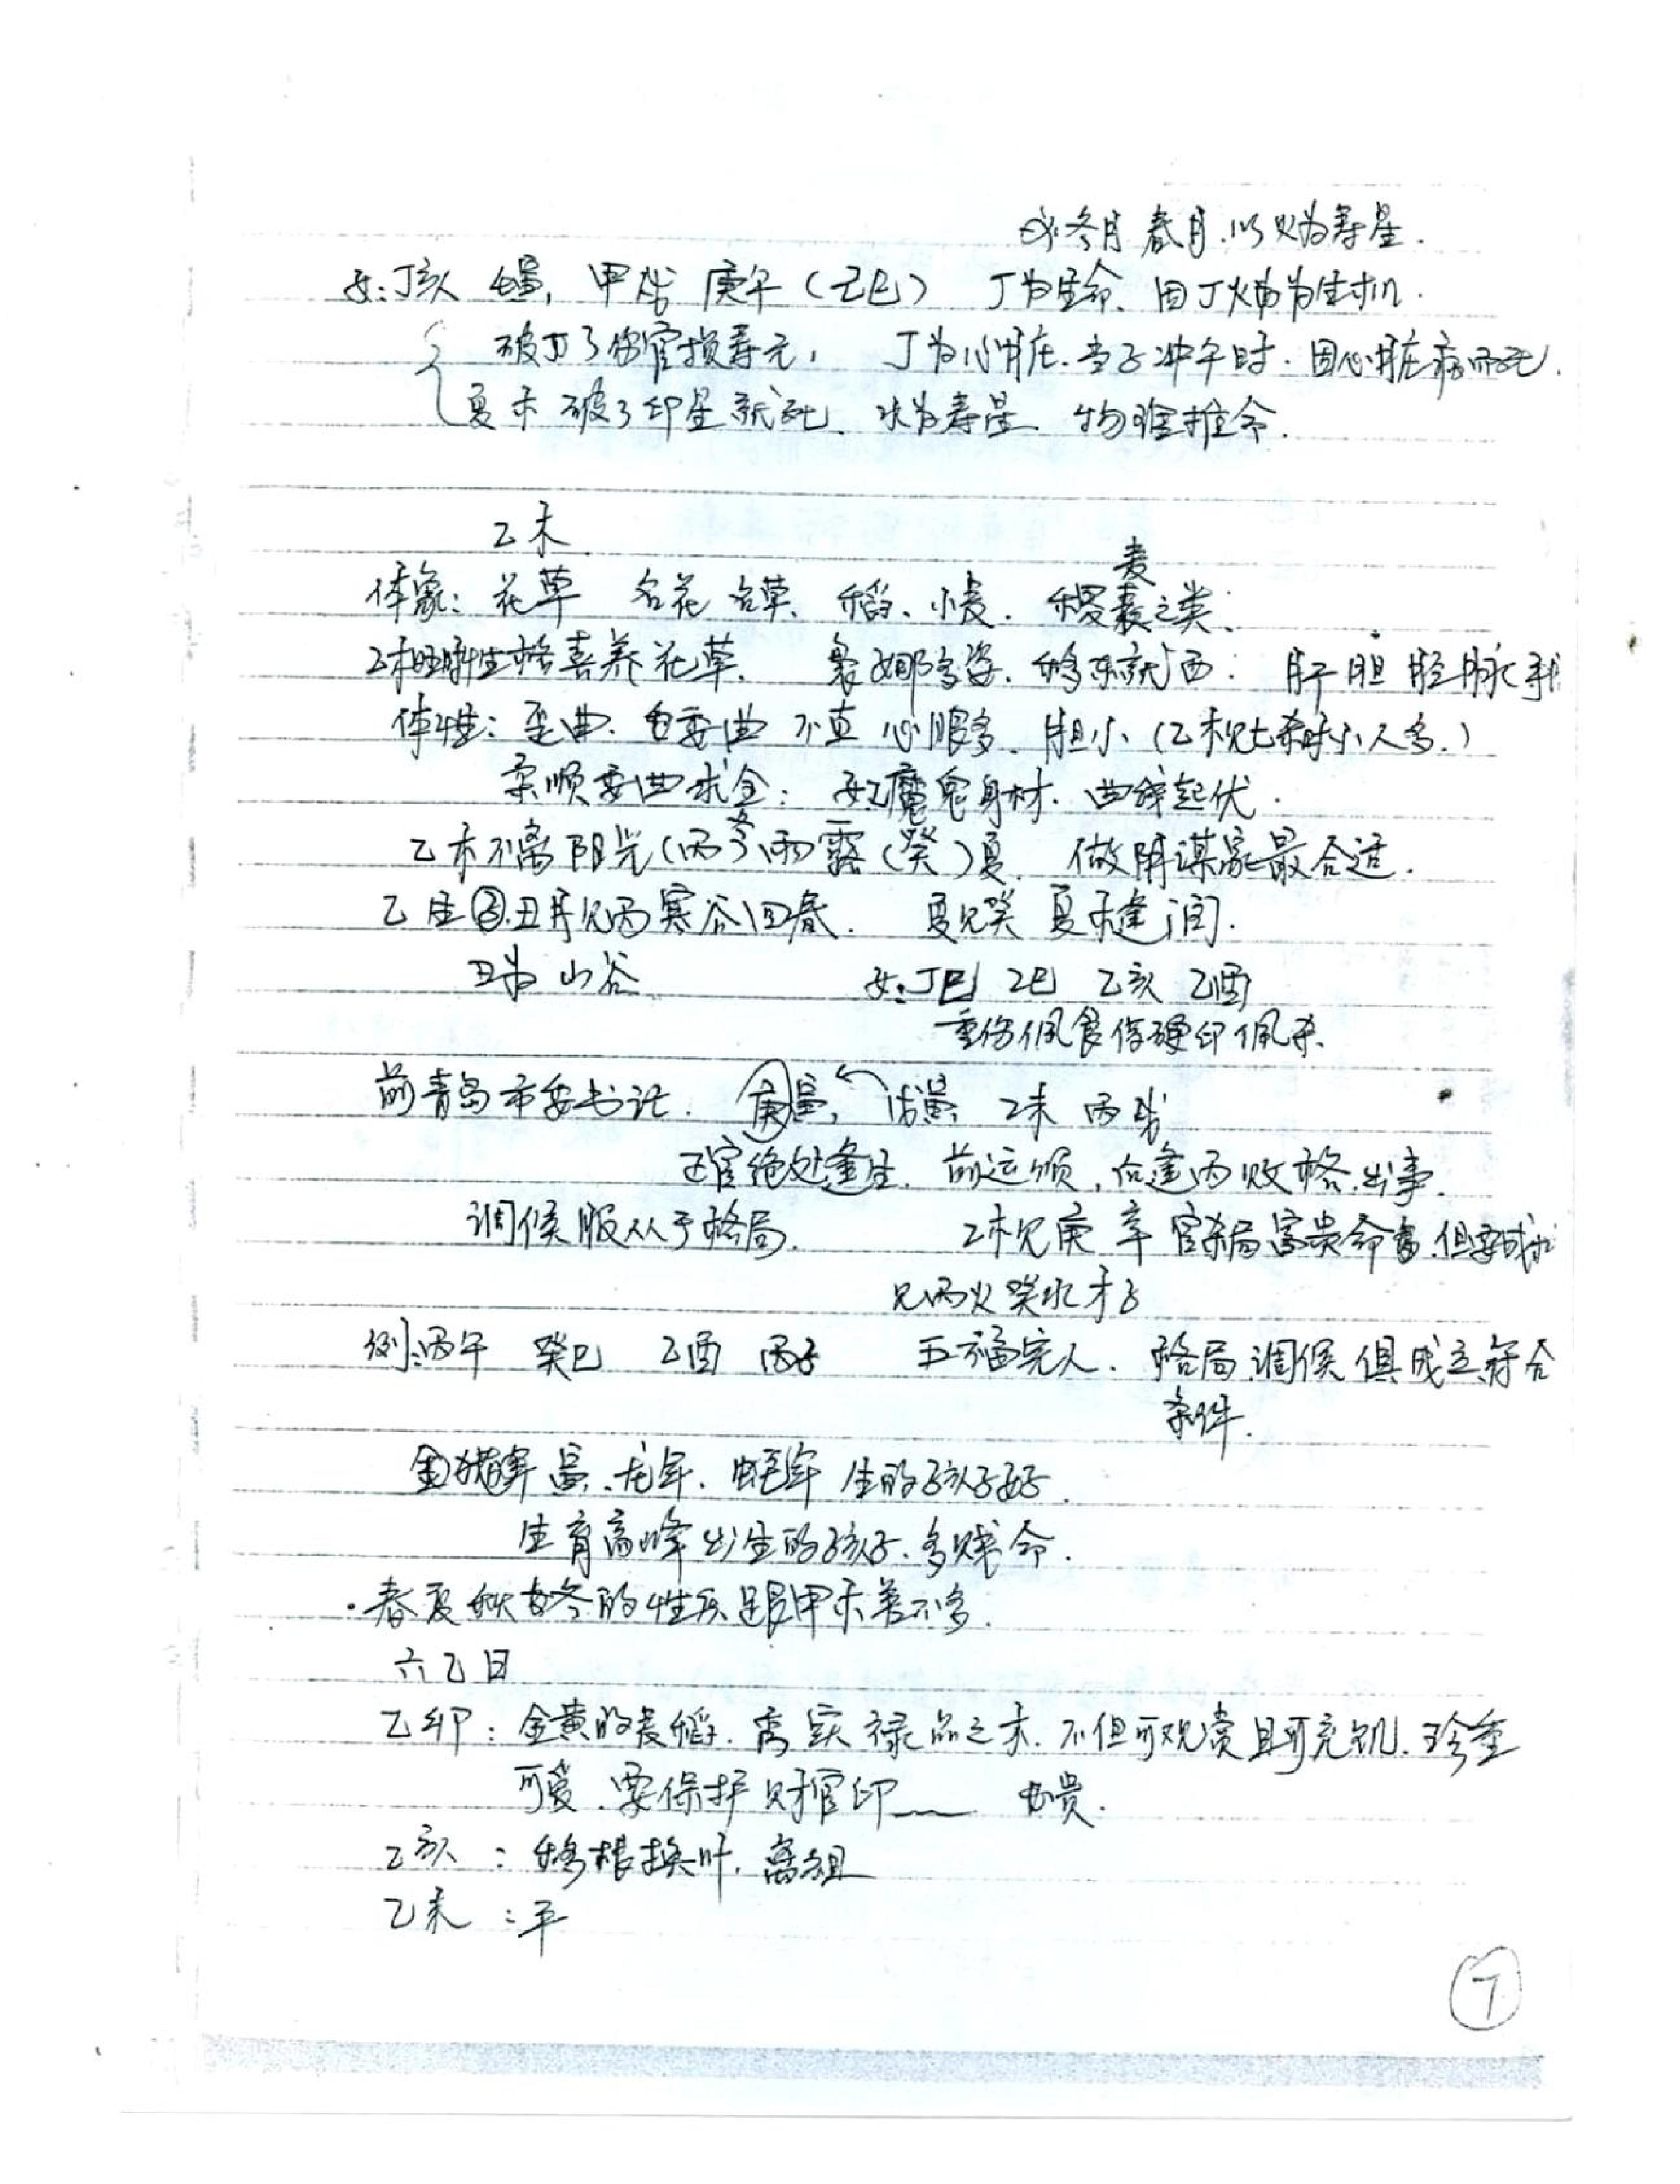 或冬月 春月.以火为寿星.
女:丁亥 壬寅, 甲戌 庚午(己巳) 丁为生命、因丁火为生机.
破丁了伤官损寿元, 丁为心脏.当子冲午时.因心脏病而死.
夏木破了印星就死、水为寿星 物理推命.
乙木
麦
体象: 花草 名花 名草、稻、小麦. 稷 之类.
乙木旺时生格喜养花草. 袅娜多姿. 移东就西: 肝胆 经脉 手
体性: 歪曲. 委曲 不直 心眼多、胆小(乙木见七杀时小人多.)
柔顺委曲求全: 女:魔鬼身材. 曲线起伏.
乙木不离阳光(丙)冬、雨露(癸)夏. 做阴谋家最合适.
乙生子.丑月见丙寒谷回春. 夏见癸 夏木逢润.
丑为山谷 女:丁巳 乙巳 乙亥 乙酉
重伤佩 印佩杀.
前青岛市委书记. 庚寅, 戊寅, 乙未 丙戌
正官绝处逢生. 前运顺, 后逢丙败格.出事.
调候服从于格局. 乙木见庚 辛 官杀局富贵命 .但要
见丙火癸水才
例:丙午 癸巳 乙酉 丙子 五福完人. 格局、调候俱成立、符合
条件.
金猪年 、龙年、蛇年 生的孩子好.
生育高峰出生的孩子.多贱命.
·春夏秋冬的性质跟甲木差不多.
六乙日
乙卯: 金黄的麦稻. 秀实禄品之木. 不但可观赏且可充饥. 珍重
可爱. 要保护财官印 贵.
乙亥 : 移根换叶. 离祖
乙未 : 平
7